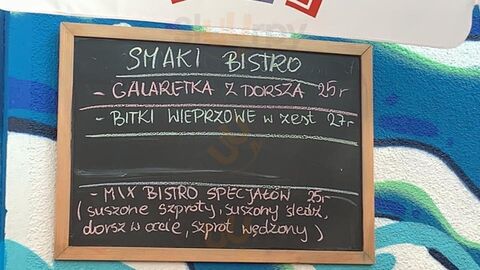 SMAKI BISTRO
- GALARETKA Z DORSZA 25,-
- BITKI WIEPRZOWE w zest 27,-
- MIX BISTRO SPECJAŁÓW 25,-
( suszone szproty, suszony śledź,
dorsz w occie, szprot wędzony )